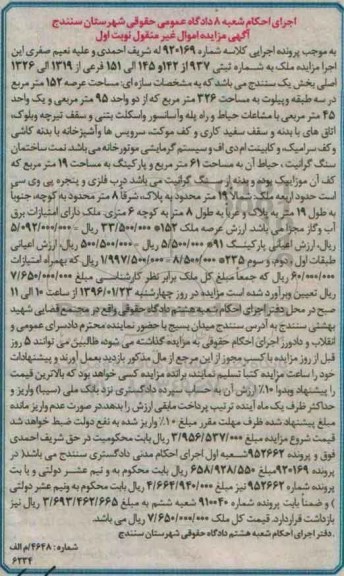 اجرای احکام شعبه ۸ دادگاه عمومی حقوقی شهرستان سنندج
آگهی مزایده اموال غیر منقول نوبت اول
به موجب پرونده اجرایی کلاسه شماره ۹۲۰۱۶۹ له شریف احمدی و علیه نعیم صفری این
اجرا مزایده ملک به شماره ثبتی ۹۳۷ از ۱۴۲و ۱۴۵ الی ۱۵۱ فرعی از ۱۳۱۹ الی ۱۳۲۶
اصلی بخش یک سنندج می باشد که به مشخصات سازه ای: مساحت عرصه ۱۵۲ متر مربع
در سه طبقه وپیلوت به مساحت ۳۲۶ متر مربع که از دو واحد ۹۵ متر مربعی و یک واحد
۴۵ متر مربعی با مشاعات حیاط و راه پله وآسانسور واسکلت بتنی و سقف تیرچه وبلوک،
اتاق های با بدنه و سقف سفید کاری و کف موکت، سرویس ها وآشپزخانه با بدنه کاشی
و کف سرامیک، و کابینت ام دی اف وسیستم گرمایشی موتورخانه می باشد نمت ساختمان
سنگ گرانیت ، حیاط آن به مساحت ۶۱ متر مربع و پارکینگ به مساحت ۱۹ متر مربع که
کف آن موزاییک بوده و بدنه از سنگ گرانیت می باشد درب فلزی و پنجره پی وی سی
است حدود اربعه ملک شمالا ۱۹ متر محدود به پلاک، شرقا ۸ متر محدود به کوچه، جنوباً
به طول ۱۹ متر به پلاک وغرباً به طول ۸ متر به کوچه ۶ متری. ملک دارای امتیازات برق
آب وگاز مجزا می باشد ارزش عرصه ملک ۱۵۲@ ۳۳/۵۰۰/۰۰۰ ریال - ۵/۰۹۲/۰۰۰/۰۰۰
ریال، ارزش اعیانی پارکینگ ۹۱@ ۵/۵۰۰/۰۰۰ ریال - ۵۰۰/۵۰۰/۰۰۰ ریال، ارزش اعیانی
طبقات اول و دوم و سوم ۲۳۵@ ۸/۵۰۰/۰۰۰ - ۱/۹۹۷/۵۰۰/۰۰۰ ریال که بهمراه امتیازات
۶۰/۰۰۰/۰۰۰ ریال که جمعاً مبلغ کل ملک برابر نظر کارشناسی مبلغ ۷/۶۵۰/۰۰۰/۰۰۰
ریال تعیین وبرآورد شده است مزایده در روز چهارشنبه ۱۳۹۶/۰۱/۲۳ از ساعت ۱۰ الی ۱۱
صبح در محل دفتر اجرای احکام شعبه هشتم دادگاه حقوقی واقع در مجتمع قضایی شهید
بهشتی سنندج به آدرس سنندج میدان بسیج با حضور نماینده محترم دادسرای عمومی و
انقلاب و دادورز اجرای احکام حقوقی به مزایده گذاشته می شود، طالبین می توانند ۵ روز
قبل از روز مزایده با کسب مجوز از این مرجع از مال مذکور بازدید بعمل آورند و پیشنهادات
خود را ساعت مزایده کتبا تسلیم نمایند، برنده مزایده کسی خواهد بود که بالاترین قیمت
را پیشنهاد وبدوا ۱۰٪ ارزش آن به حساب سپرده دادگستری نزد بانک ملی (سیبا) واریز و
حداکثر ظرف یک ماه آینده ترتیب پرداخت مابقی ارزش را بدهد.در صورت عدم واریز مانده
مبلغ پیشنهاد شده ظرف مهلت مقرر مبلغ ۱۰٪ واریز شده به نفع دولت ضبط خواهد شد
قیمت شروع مزایده مبلغ ۳/۹۵۶/۵۳۷/۰۰۰ ریال بابت محکومیت در حق شریف احمدی
فوق و پرونده ۹۵۲۶۶۲شعبه اول اجرای احکام مدنی دادگستری سنندج می باشد( در
پرونده ۹۲۰۱۶۹مبلغ ۶۵۸/۹۲۸/۵۵۰ ریال بابت محکوم به و نیم عشر دولتی و یا بت
پرونده شماره ۹۵۲۶۶۲ نیز مبلغ ۴/۶۶۴/۹۴۰/۰۰۰ ریال بابت محکوم به ونیم عشر دولتی
) و ضمناً بابت پرونده شماره ۹۱۰۰۴۰ شعبه ششم به مبلغ ۳/۶۹۳/۴۶۲/۶۶۵ ریال نیز
بازداشت قراردارد. قیمت کل ملک ۷/۶۵۰/۰۰۰/۰۰۰ ریال می باشد.
.دفتر اجرای احکام شعبه هشتم دادگاه حقوقی شهرستان سنندج
شماره: ۴۶۴۸/م الف
۶۲۳۴